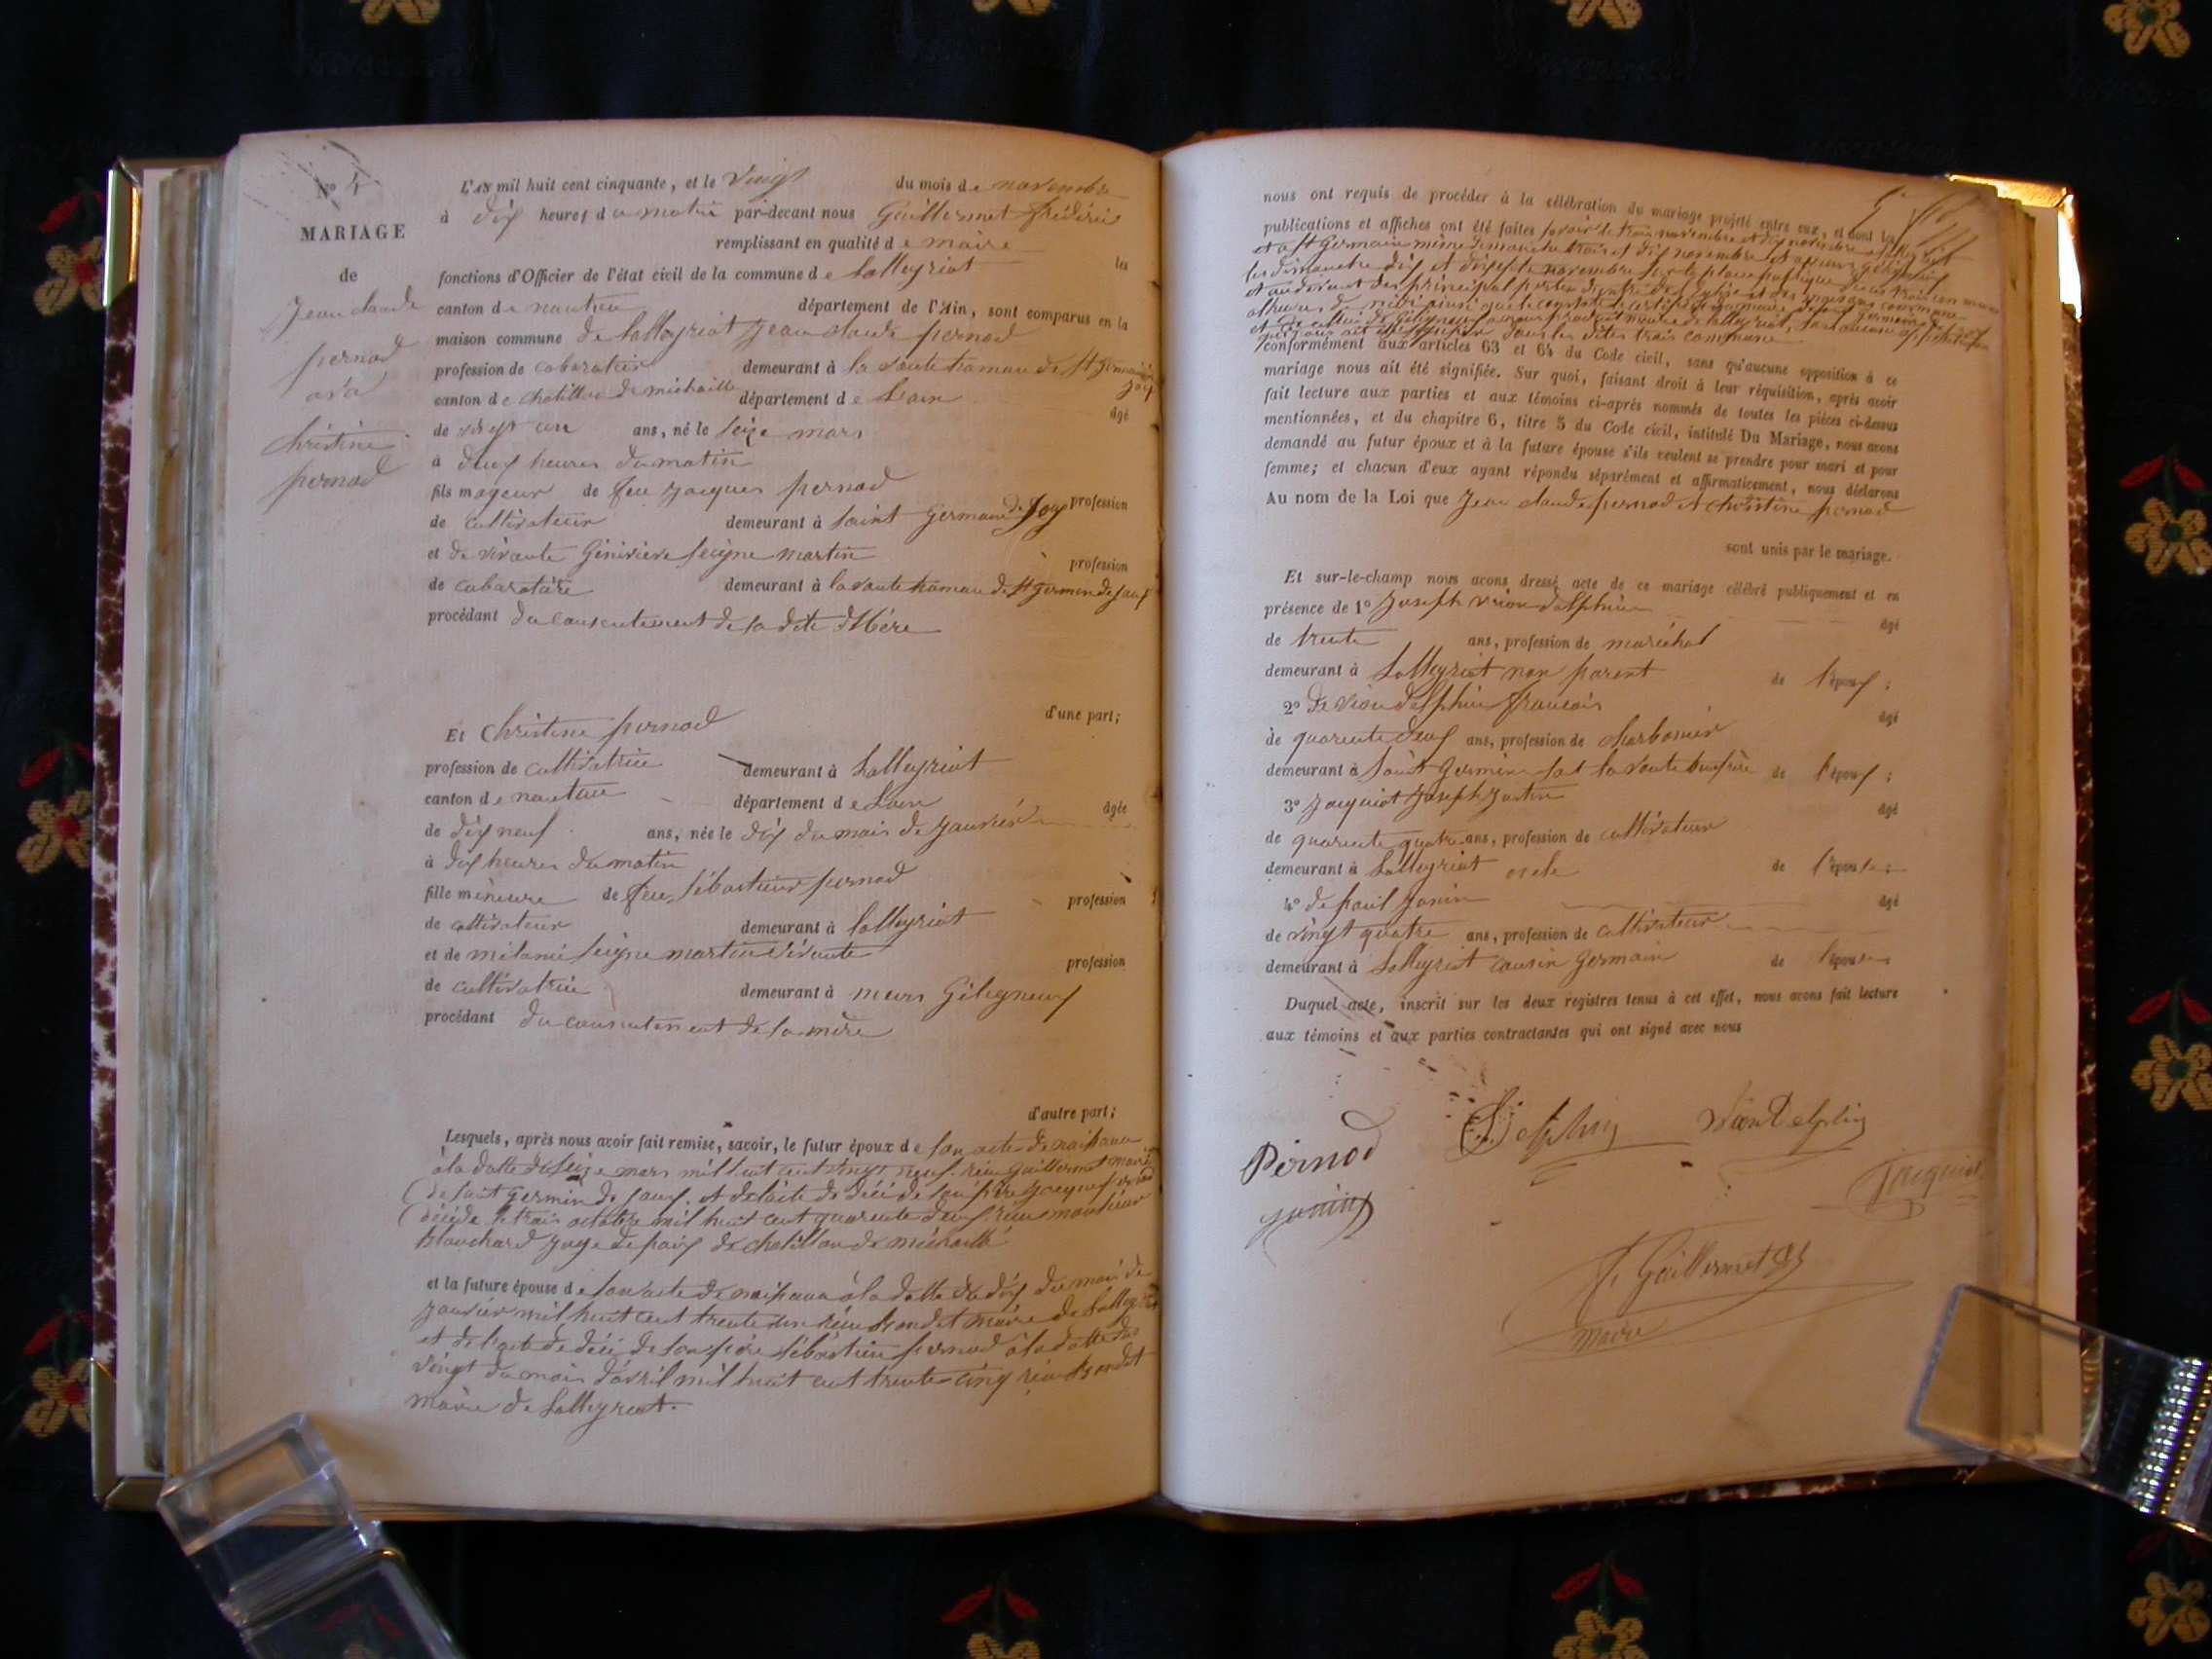 N° 4
MARIAGE
de
Jean claude
pernod
et à
christine
pernod
L'AN mil huit cent cinquante, et le vingt du mois de novembre
à dix heures du matin par-devant nous Guillermet frédéric
remplissant en qualité de maire les
fonctions d'Officier de l'état civil de la commune de Lalleyriat
canton de nantua département de l'Ain, sont comparus en la
maison commune de Lalleyriat Jean claude pernod
profession de cabaratier demeurant à la voute hamau de St Germain de Joux
canton de chatillon de michaille département de L'ain âgé
de vingt un ans, né le seize mars
à deux heures du matin
fils mageur de feu Jacques pernod profession
de cultivateur demeurant à saint Germain de Joux
et de vivante Génivieve seigne martin profession
de cabaratière demeurant à la voute hamau de St germen de joux
procédant du consentement de sa dite Mère
d'une part;
Et Christine pernod
profession de cultivatrice demeurant à Lalleyriat
canton de nantua département de L'ain âgée
de dix neuf ans, née le dix du mois de janvier
à dix heures du matin
fille mineure de feu Sébastien pernod profession
de cultivateur demeurant à Lalleyriat
et de mélanie seigne martin vivante profession
de cultivatrice demeurant à meurs Gélignieux
procédant du consentement de sa mère
d'autre part;
Lesquels, après nous avoir fait remise, savoir, le futur époux de son acte de naissance
à la datte du seize mars mil huit cent vingt neuf reçu Guillermet maire
de saint germin de joux. et de l'acte de décé de son père Jacques pernod
décédé le trois octobre mil huit cent quarente deux reçu monsieur
Blanchard juge de paix de chatillon de michaille
et la future épouse de son acte de naissance à la datte du dix du mois de
janvier mil huit cent trente un reçu Bondet maire de Lalleyriat
et de l'acte de décé de son père Sébastien pernod à la datte du
vingt du mois d'avril mil huit cent trente cinq reçu Bondet
maire de Lalleyriat.
nous ont requis de procéder à la célébration du mariage projeté entre eux, et dont les
publications et affiches ont été faites savoir le trois novembre et dix novembre
et a St Germain même dimanche trois et dix novembre et a meurs Gélignieux
les dimanche dix et dixsepte novembre sur la place publique
et audevant des principal portes d'entré de l'église et des maisons commune
a l'heure de midi ainsi que le constate le certificat du maire de St Germain de Joux
et de celui de Gélignieux
conformément aux articles 63 et 64 du Code civil, sans qu'aucune opposition à ce
mariage nous ait été signifiée. Sur quoi, faisant droit à leur réquisition, après avoir
fait lecture aux parties et aux témoins ci-après nommés de toutes les pièces ci-dessus
mentionnées, et du chapitre 6, titre 5 du Code civil, intitulé Du Mariage, nous avons
demandé au futur époux et à la future épouse s'ils veulent se prendre pour mari et pour
femme; et chacun d'eux ayant répondu séparément et affirmativement, nous déclarons
Au nom de la Loi que Jean claude pernod et christine pernod
sont unis par le mariage.
Et sur-le-champ nous avons dressé acte de ce mariage célébré publiquement et en
présence de 1° Joseph vion delphin âgé
de trente ans, profession de maréchal
demeurant à Lalleyriat non parent de l'époux;
2° De vion delphin françois âgé
de quarente deux ans, profession de charbonier
demeurant à saint Germin la voute beaufrère de l'époux;
3° Jacquiot Joseph Justin âgé
de quarente quatre ans, profession de cultivateur
demeurant à Lalleyriat oncle de l'épouse;
4° de paul Janin âgé
de vingt quatre ans, profession de cultivateur
demeurant à Lalleyriat causin germain de l'épouse
Duquel acte, inscrit sur les deux registres tenus à cet effet, nous avons fait lecture
aux témoins et aux parties contractantes qui ont signé avec nous
Pernod
Delphin
Viont delphin
janin
Jacquiot
f. Guillermet
maire